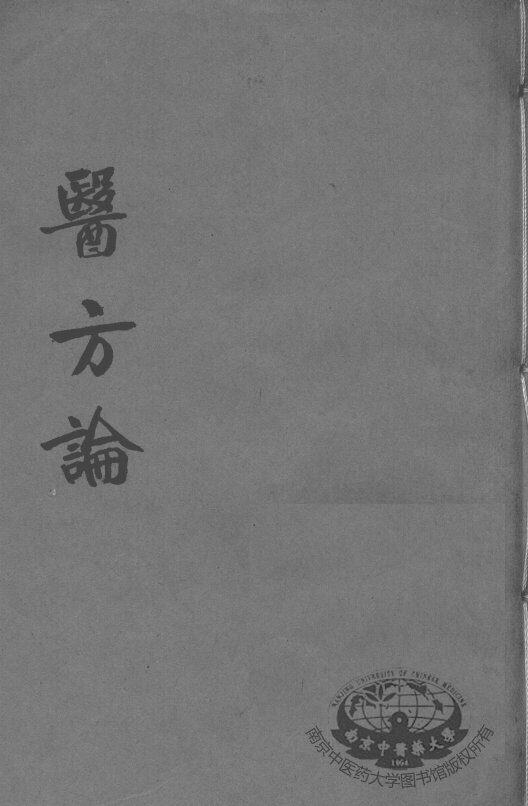 醫方論
NANJING UNIVERSITY OF CHINESE MEDICINE
南京中醫藥大學
1954
南京中医药大学图书馆版权所有